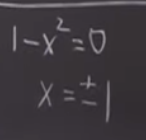 1-x²=0
x=±1